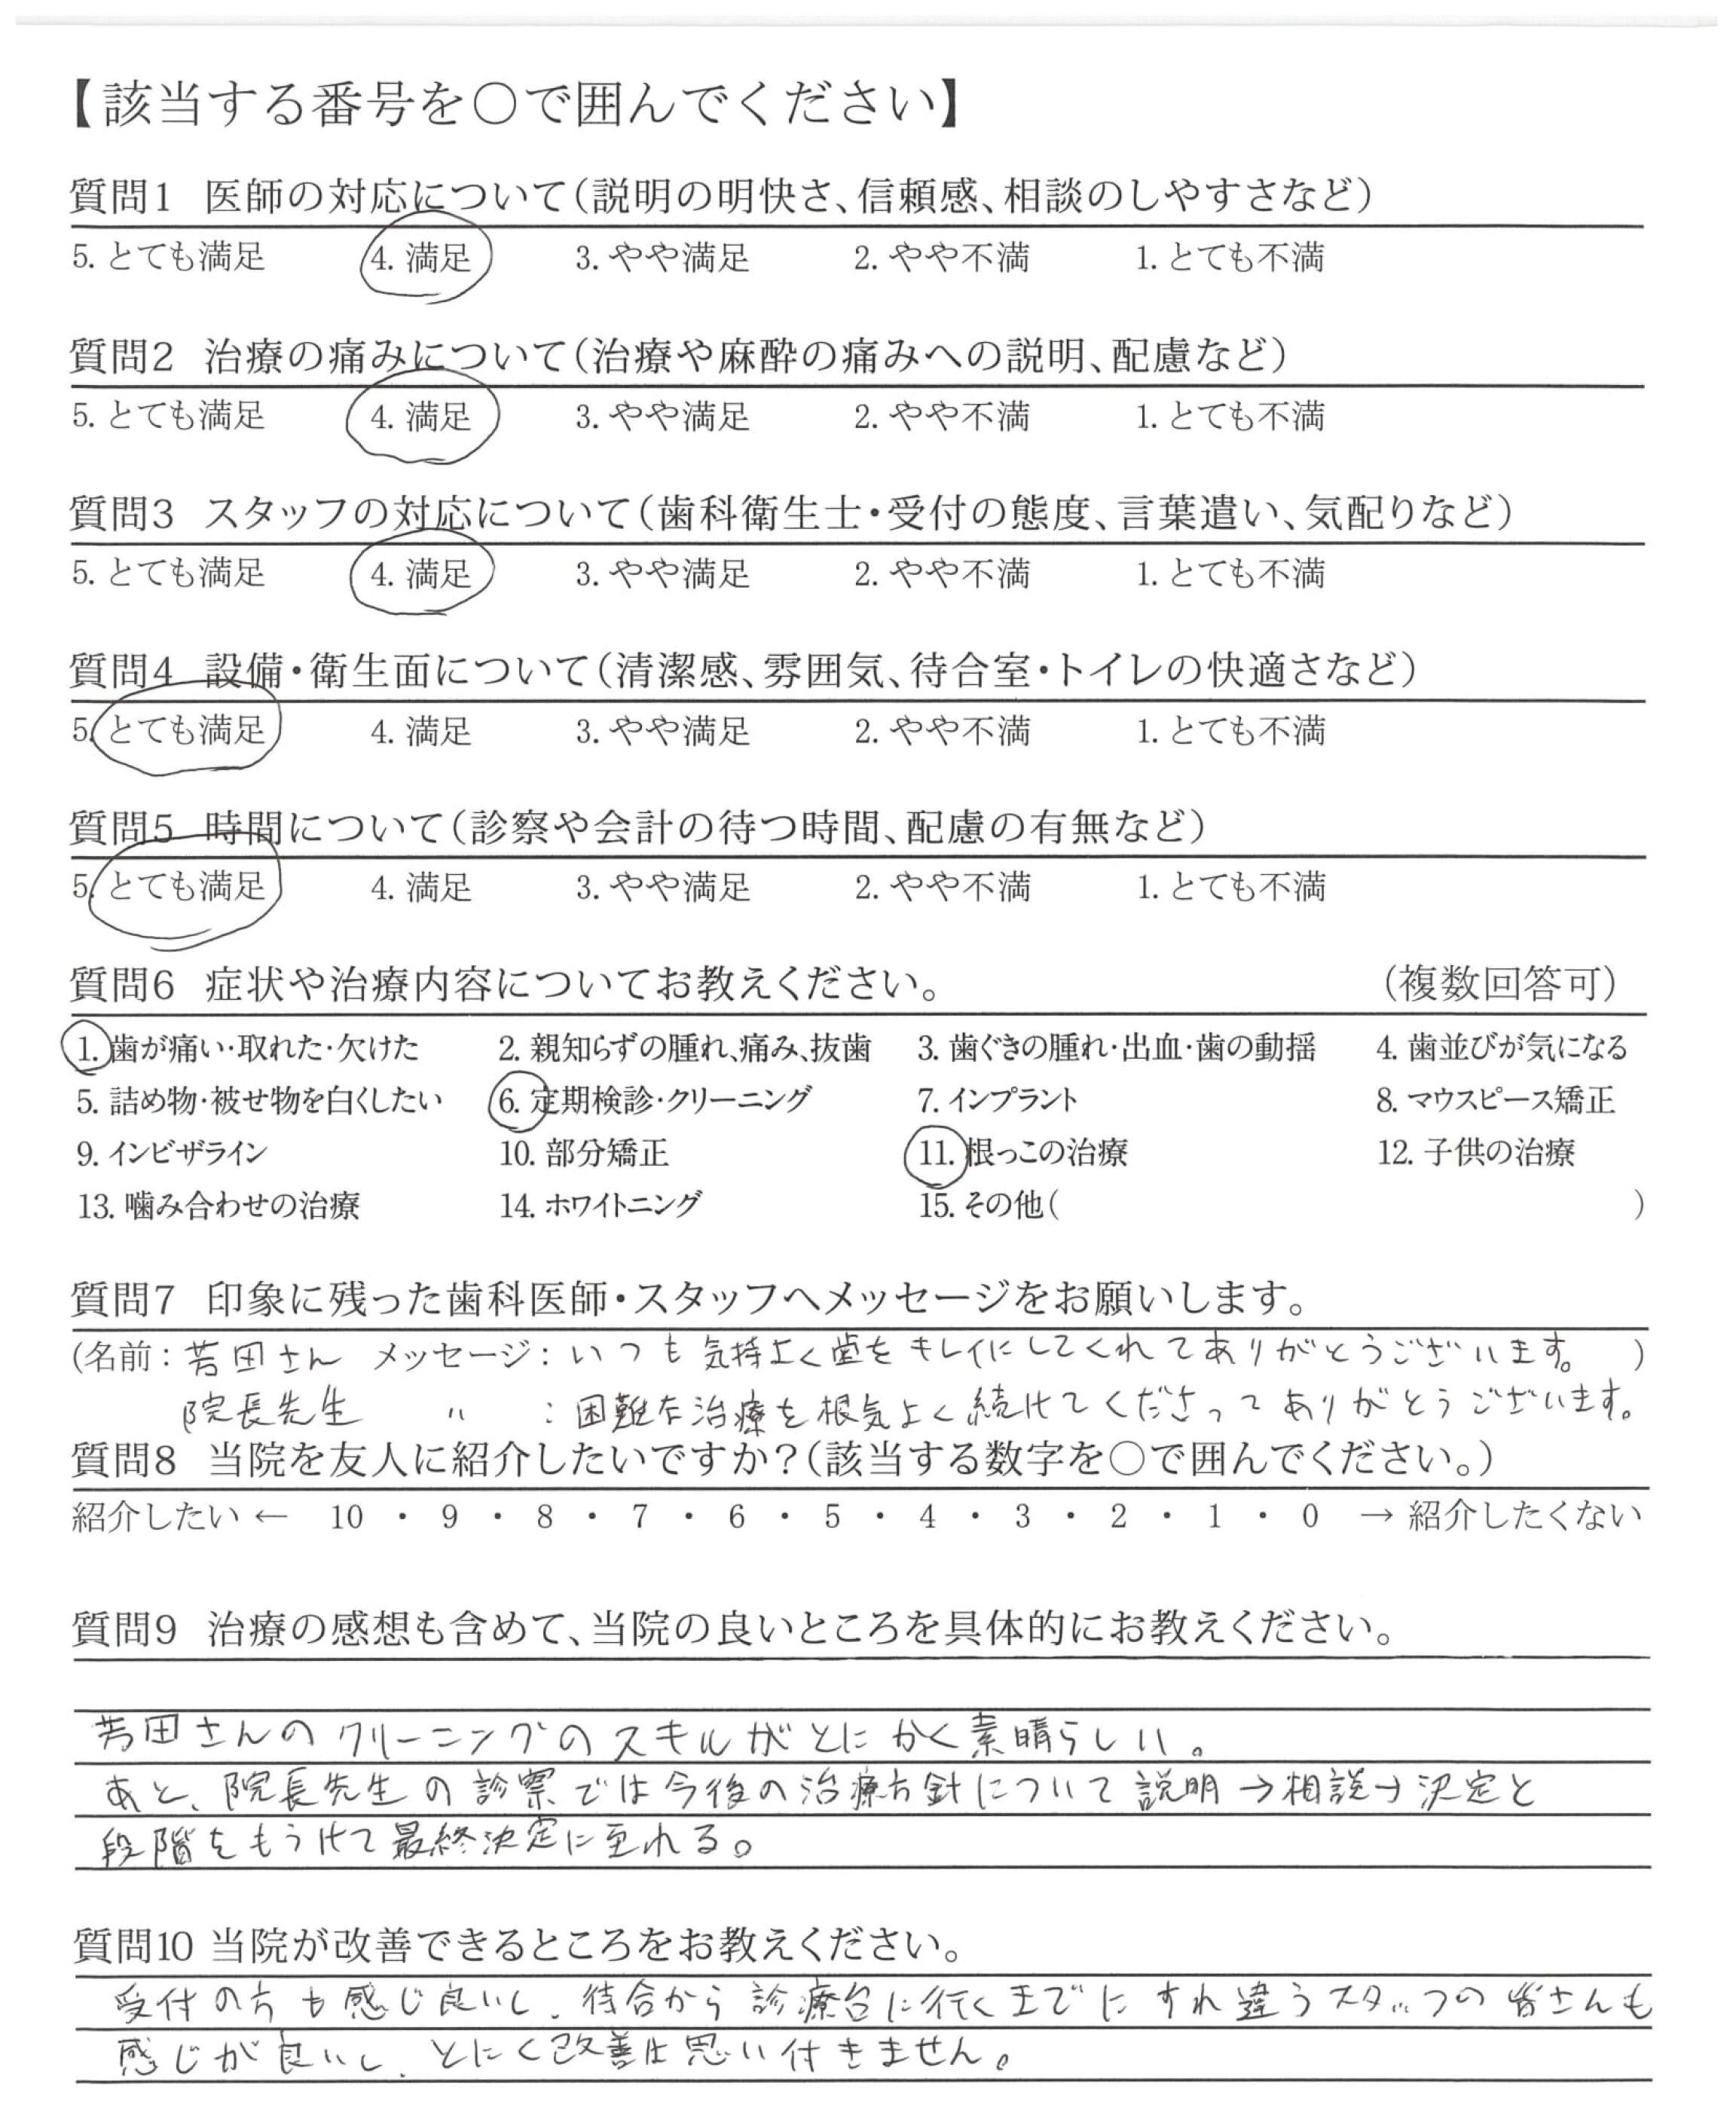 【該当する番号を○で囲んでください】
質問1 医師の対応について(説明の明快さ、信頼感、相談のしやすさなど)
5. とても満足 4. 満足 3. やや満足 2. やや不満 1. とても不満
質問2 治療の痛みについて(治療や麻酔の痛みへの説明、配慮など)
5. とても満足 4. 満足 3. やや満足 2. やや不満 1. とても不満
質問3 スタッフの対応について(歯科衛生士・受付の態度、言葉遣い、気配りなど)
5. とても満足 4. 満足 3. やや満足 2. やや不満 1. とても不満
質問4 設備・衛生面について(清潔感、雰囲気、待合室・トイレの快適さなど)
5. とても満足 4. 満足 3. やや満足 2. やや不満 1. とても不満
質問5 時間について(診察や会計の待つ時間、配慮の有無など)
5. とても満足 4. 満足 3. やや満足 2. やや不満 1. とても不満
質問6 症状や治療内容についてお教えください。 (複数回答可)
1. 歯が痛い・取れた・欠けた 2. 親知らずの腫れ、痛み、抜歯 3. 歯ぐきの腫れ・出血・歯の動揺 4. 歯並びが気になる
5. 詰め物・被せ物を白くしたい 6. 定期検診・クリーニング 7. インプラント 8. マウスピース矯正
9. インビザライン 10. 部分矯正 11. 根っこの治療 12. 子供の治療
13. 噛み合わせの治療 14. ホワイトニング 15. その他( )
質問7 印象に残った歯科医師・スタッフへメッセージをお願いします。
(名前: 田さん メッセージ: いつも気持よく歯をキレイにしてくれてありがとうございます。 )
院長先生 〃 : 困難な治療を根気よく続けてくださってありがとうございます。
質問8 当院を友人に紹介したいですか?(該当する数字を○で囲んでください。)
紹介したい ← 10 ・ 9 ・ 8 ・ 7 ・ 6 ・ 5 ・ 4 ・ 3 ・ 2 ・ 1 ・ 0 → 紹介したくない
質問9 治療の感想も含めて、当院の良いところを具体的にお教えください。
田さんのクリーニングのスキルがとにかく素晴らしい。
あと、院長先生の診察では今後の治療方針について説明→相談→決定と
段階をもうけて最終決定に至れる。
質問10 当院が改善できるところをお教えください。
受付の方も感じ良いし、待合から診療台に行くまでにすれ違うスタッフの皆さんも
感じが良いし、とにく改善は思い付きません。